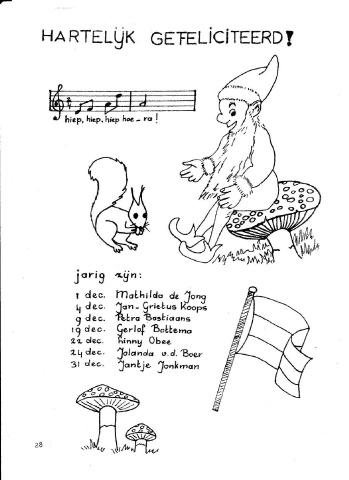 HARTELIJK GEFELICITEERD!
hiep, hiep, hiep hoe-ra!
jarig zijn:
1 dec. Mathilda de Jong
4 dec. Jan-Grietus Koops
9 dec. Petra Bastiaans
19 dec. Gerlof Bottema
22 dec. Linny Obee
24 dec. Jolanda v.d. Boer
31 dec. Jantje Jonkman
28